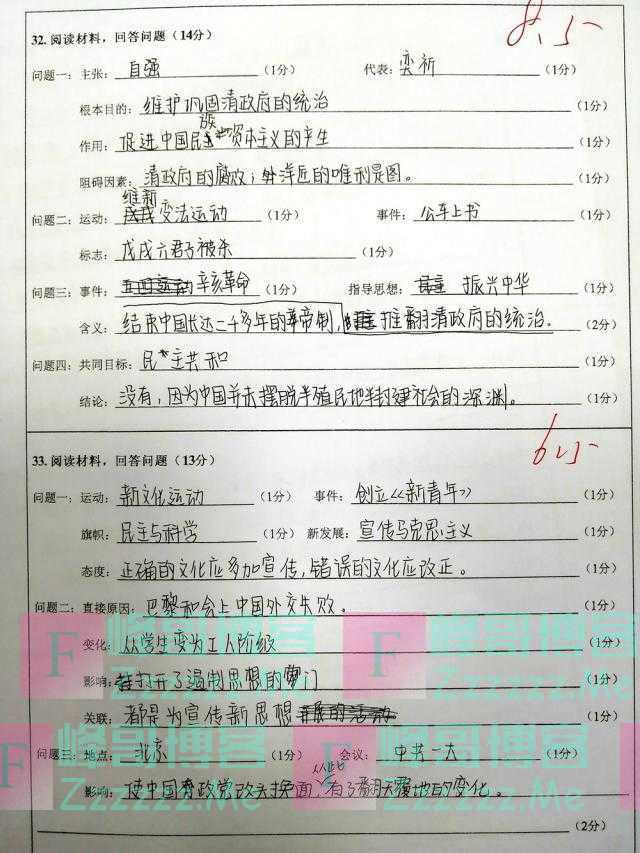 8.5
32. 阅读材料，回答问题（14分）
问题一：主张：自强（1分） 代表：奕䜣（1分）
根本目的：维护巩固清政府的统治（1分）
作用：促进中国民族资本主义的产生（1分）
阻碍因素：清政府的腐败；外洋匠的唯利是图。（1分）
问题二：运动：维新变法运动（1分） 事件：公车上书（1分）
标志：戊戌六君子被杀（1分）
问题三：事件：辛亥革命（1分） 指导思想：振兴中华（1分）
含义：结束中国长达二千多年的帝制，推翻清政府的统治。（2分）
问题四：共同目标：民主共和（1分）
结论：没有，因为中国并未摆脱半殖民地半封建社会的深渊。（1分）
6.5
33. 阅读材料，回答问题（13分）
问题一：运动：新文化运动（1分） 事件：创立《新青年》（1分）
旗帜：民主与科学（1分） 新发展：宣传马克思主义（1分）
态度：正确的文化应多加宣传，错误的文化应改正。（1分）
问题二：直接原因：巴黎和会上中国外交失败。（1分）
变化：从学生变为工人阶级（1分）
影响：打开了遏制思想的闸门（1分）
关联：都是为宣传新思想（1分）
问题三：地点：北京（1分） 会议：中共一大（1分）
影响：使中国政党改头换面，从此有了翻天覆地的变化。
（2分）
F 峰哥博客
Zzzzzz.Me
F 峰哥博客
Zzzzzz.Me
峰哥博客
Zzzzzz.Me
F 峰哥博客
Zzzzzz.Me